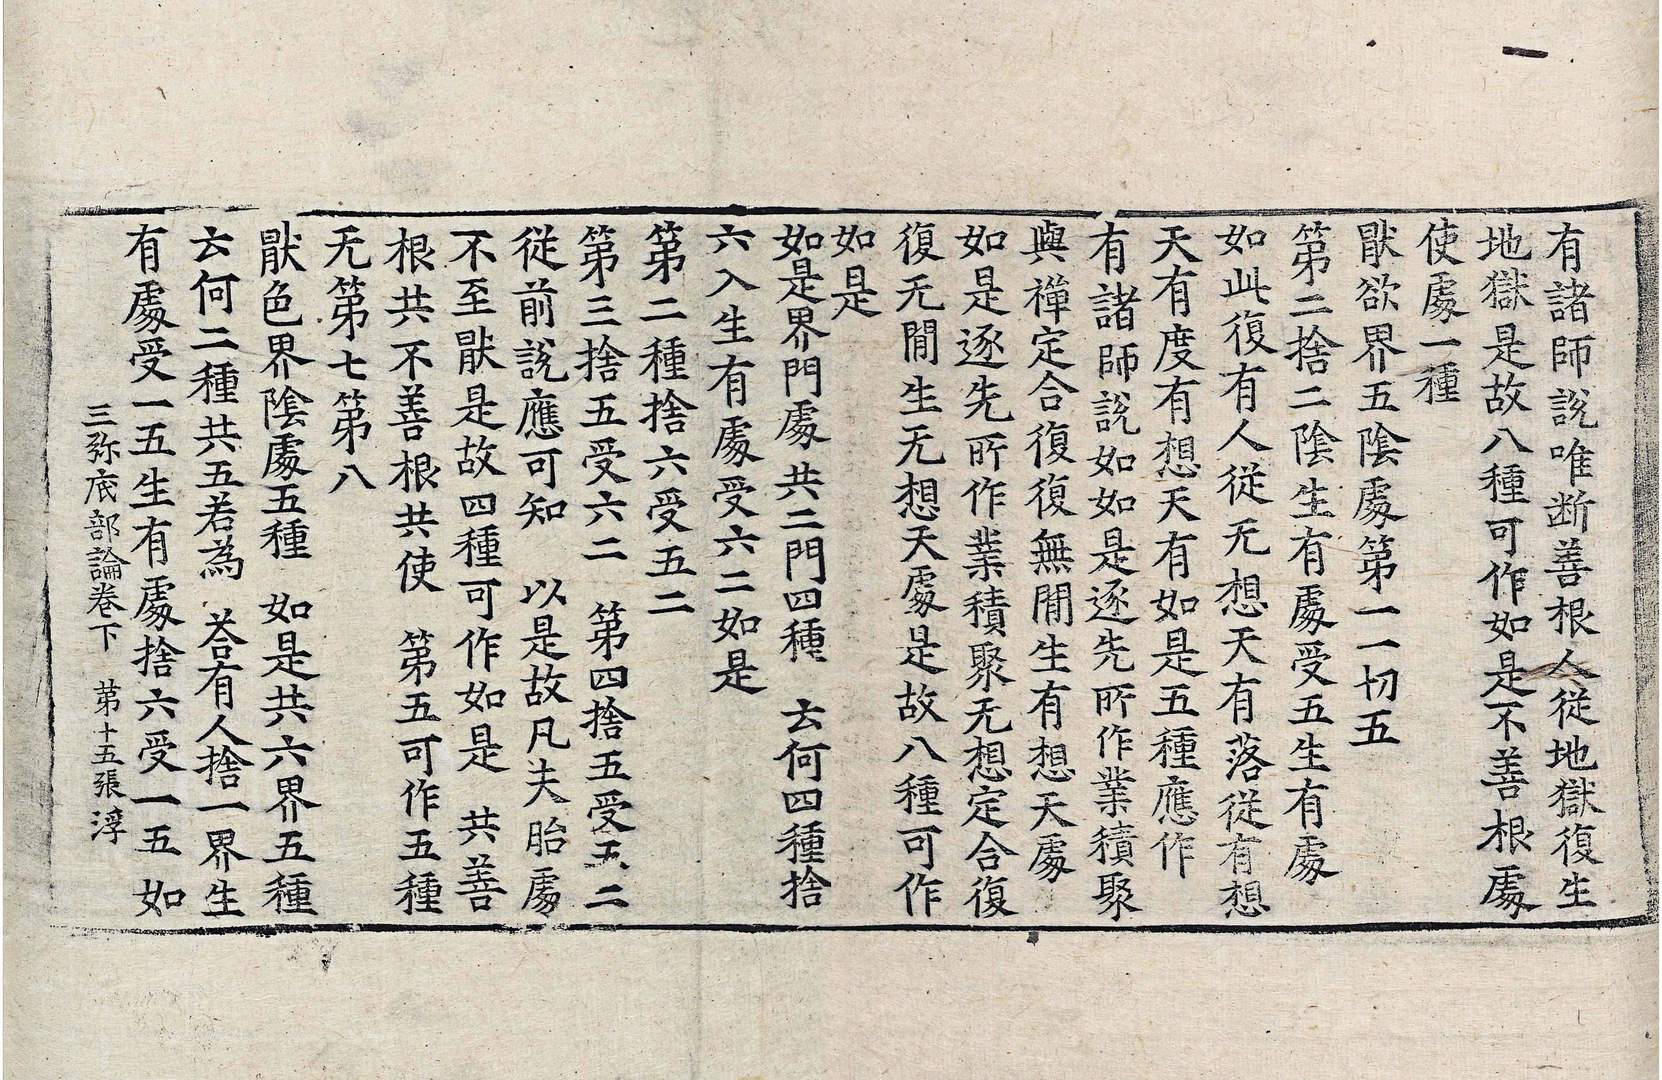 有諸師說唯断善根人從地獄復生
地獄是故八種可作如是不善根處
使處一種
猒欲界五陰處第一一切五
第二捨二陰生有處受五生有處
如此復有人從无想天有落從有想
天有度有想天有如是五種應作
有諸師說如如是逐先所作業積聚
與禪定合復復無間生有想天處
如是逐先所作業積聚无想定合復
復无間生无想天處是故八種可作
如是
如是界門處共二門四種 云何四種捨
六入生有處受六二如是
第二種捨六受五二
第三捨五受六二 第四捨五受五二
從前說應可知 以是故凡夫胎處
不至猒是故四種可作如是 共善
根共不善根共使 第五可作五種
无第七第八
猒色界陰處五種 如是共六界五種
云何二種共五若為 荅有人捨一界生
有處受一五生有處捨六受一五如
三弥底部論卷下 第十五張 淳